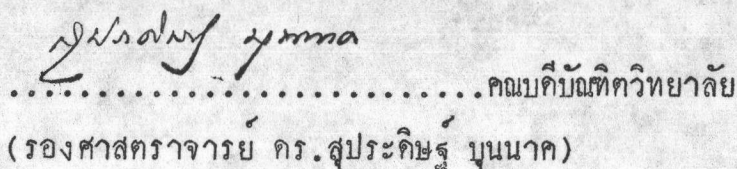 ..............................คณบดีบัณฑิตวิทยาลัย
(รองศาสตราจารย์ ดร.สุประดิษฐ์ บุนนาค)